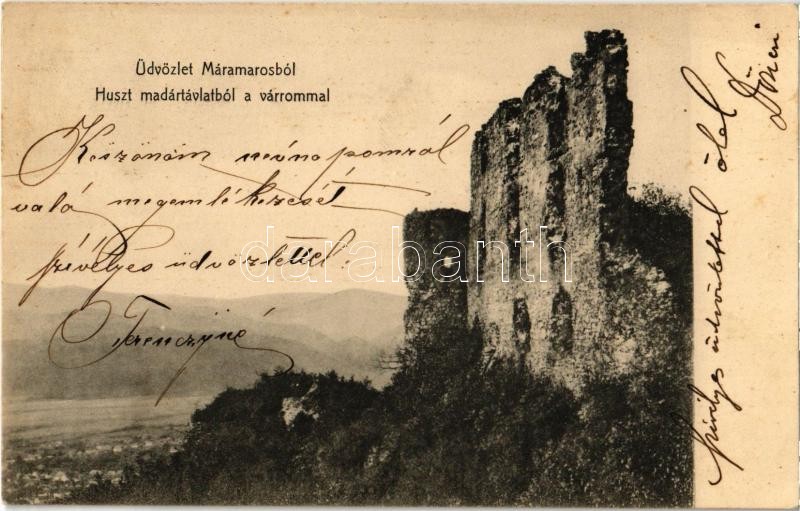 Üdvözlet Máramarosból
Huszt madártávlatból a várrommal
Köszönöm névnapomról
való megemlékezését
szívélyes üdvözlettel.
Trenczyné
szívélyes üdvözlettel ölel
darabanth